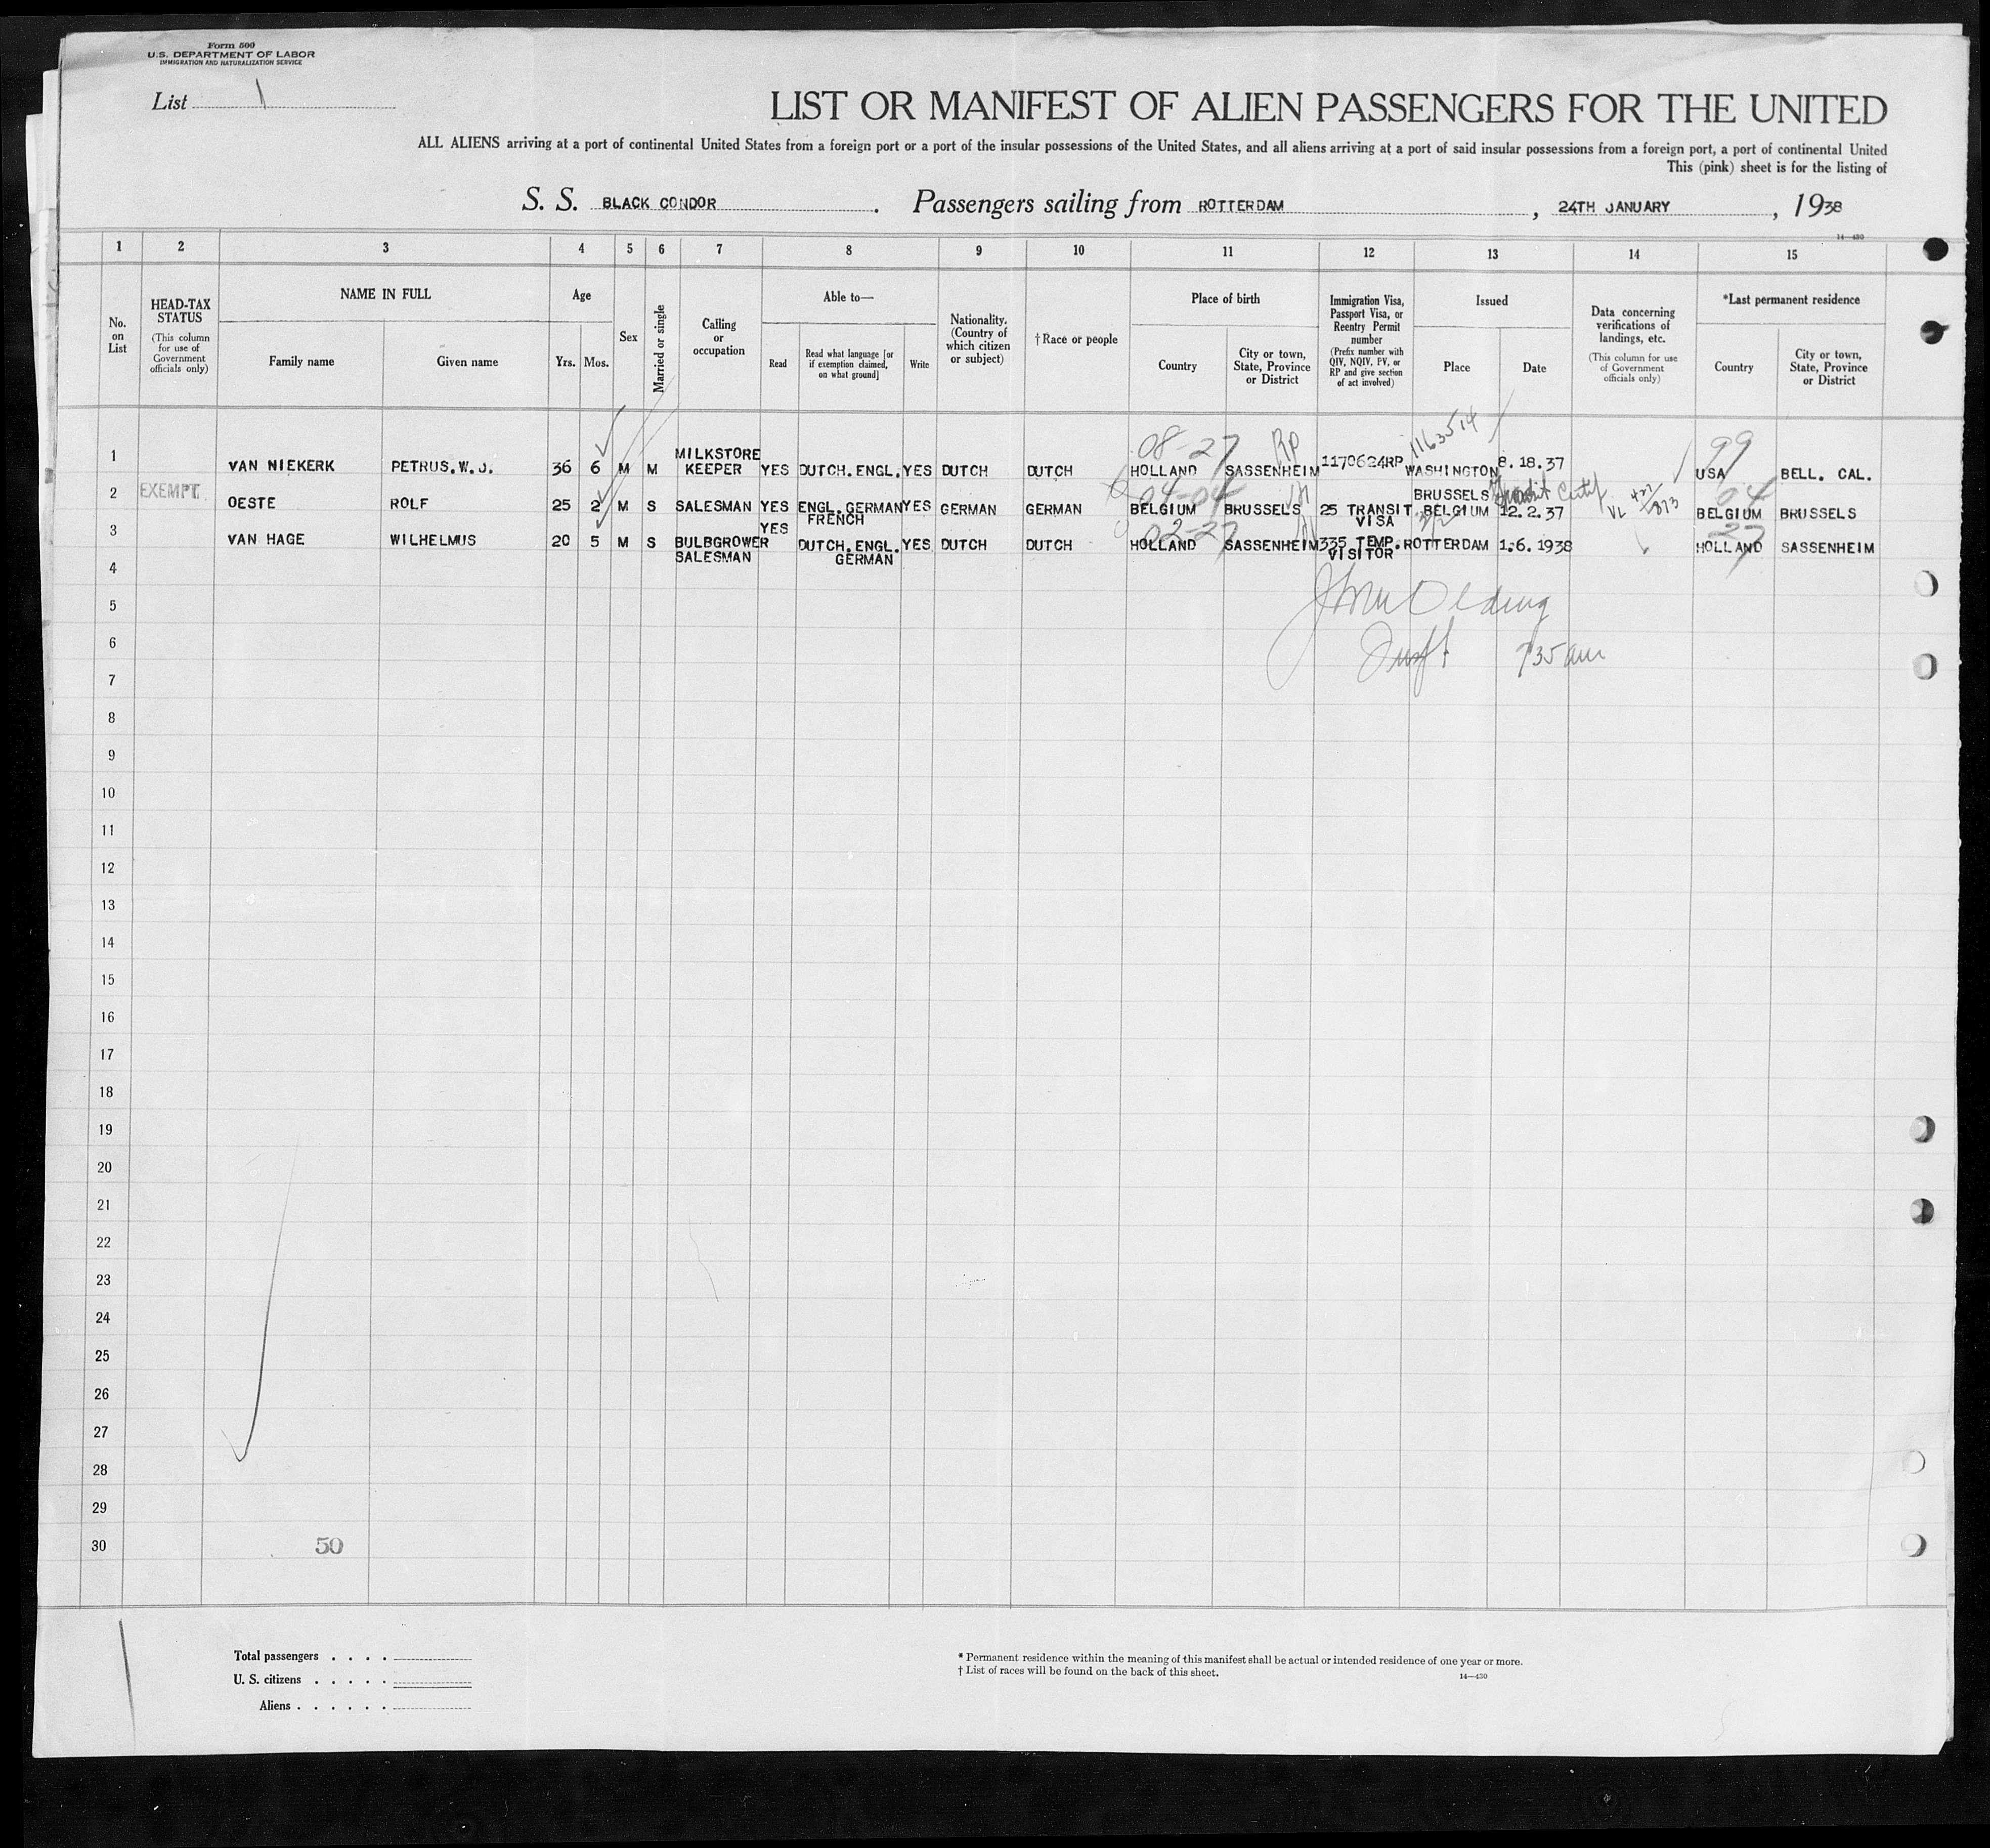 Form 500
U.S. DEPARTMENT OF LABOR
IMMIGRATION AND NATURALIZATION SERVICE
List 1
LIST OR MANIFEST OF ALIEN PASSENGERS FOR THE UNITED
ALL ALIENS arriving at a port of continental United States from a foreign port or a port of the insular possessions of the United States, and all aliens arriving at a port of said insular possessions from a foreign port, a port of continental United
This (pink) sheet is for the listing of
S. S. BLACK CONDOR. Passengers sailing from ROTTERDAM, 24TH JANUARY, 1938
14—430
1 2 3 4 5 6 7 8 9 10 11 12 13 14 15
No. on List
HEAD-TAX STATUS (This column for use of Government officials only)
NAME IN FULL
Family name
Given name
Age
Yrs. Mos.
Sex
Married or single
Calling or occupation
Able to—
Read
Read what language [or if exemption claimed, on what ground]
Write
Nationality. (Country of which citizen or subject)
† Race or people
Place of birth
Country
City or town, State, Province or District
Immigration Visa, Passport Visa, or Reentry Permit number (Prefix number with QIV, NQIV, PV, or RP and give section of act involved)
Issued
Place
Date
Data concerning verifications of landings, etc. (This column for use of Government officials only)
*Last permanent residence
Country
City or town, State, Province or District
08-27 RP 1163514 99
1 VAN NIEKERK PETRUS.W.J. 36 6 M M MILKSTORE KEEPER YES DUTCH.ENGL. YES DUTCH DUTCH HOLLAND SASSENHEIM 1170624RP WASHINGTON 8.18.37 USA BELL. CAL.
04-04 Transit Certif VL 427/873 04
2 EXEMPT. OESTE ROLF 25 2 M S SALESMAN YES ENGL.GERMAN FRENCH YES GERMAN GERMAN BELGIUM BRUSSELS 25 TRANSIT VISA BRUSSELS BELGIUM 12.2.37 BELGIUM BRUSSELS
02-27 27
3 VAN HAGE WILHELMUS 20 5 M S BULBGROWER SALESMAN YES DUTCH.ENGL. GERMAN YES DUTCH DUTCH HOLLAND SASSENHEIM 335 TEMP. VISITOR ROTTERDAM 1.6.1938 HOLLAND SASSENHEIM
4
5
6
735 am
7
8
9
10
11
12
13
14
15
16
17
18
19
20
21
22
23
24
25
26
27
28
29
30
50
Total passengers . . . .
U. S. citizens . . . . .
Aliens . . . . . .
* Permanent residence within the meaning of this manifest shall be actual or intended residence of one year or more.
† List of races will be found on the back of this sheet.
14—430